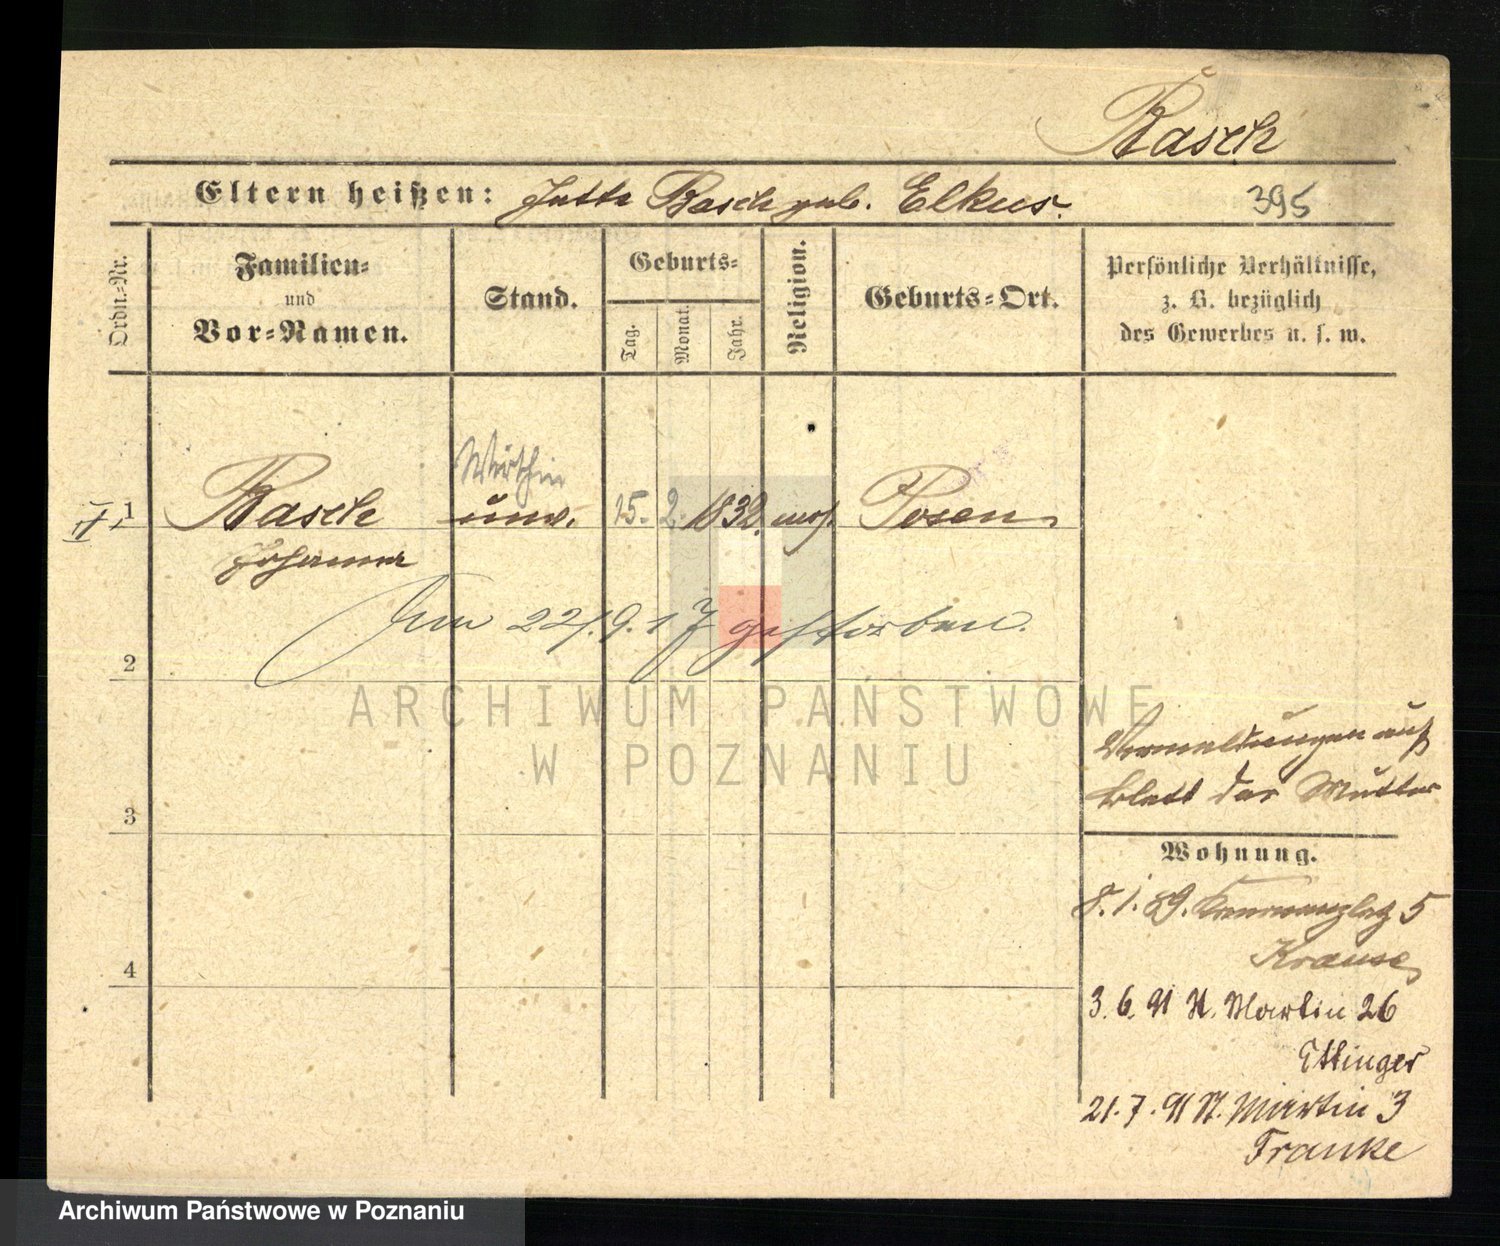 Basch
Eltern heißen: Jutta Basch geb. Elkus. 395
Ordn.-Nr.
Familien-
und
Vor-Namen.
Stand.
Geburts-
Tag.
Monat.
Jahr.
Religion.
Geburts-Ort.
Persönliche Verhältnisse,
z. B. bezüglich
des Gewerbes u. s. w.
Wirthin
1 Basch unv. 15. 2. 1832. mos. Posen
Johanna
Am 22/.9.17 gestorben.
2
ARCHIWUM PAŃSTWOWE
W POZNANIU
Vermeldungen auf
Blatt der Mutter
3
Wohnung.
8.1.89. 5
Krause
4
3.6.91 St. Martin 26
Ettinger
21.7.91 St. Martin 3
Franke
Archiwum Państwowe w Poznaniu